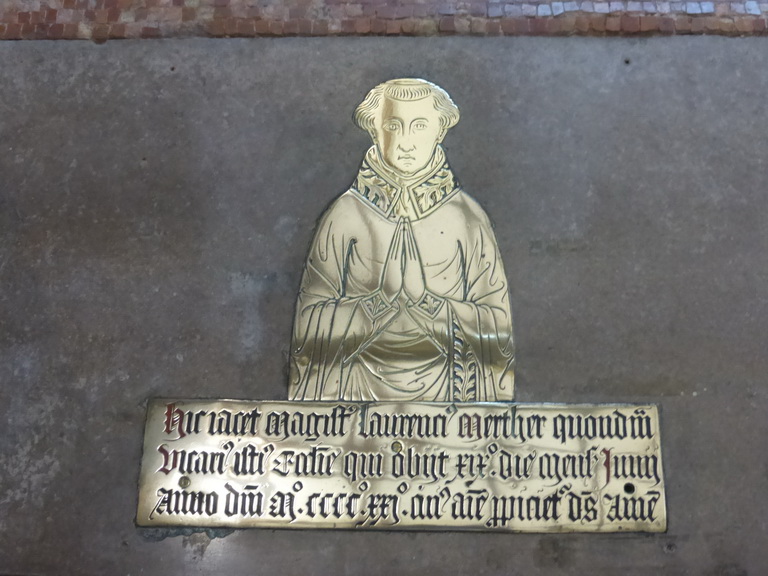 Hic iacet Magistꝰ laurenciꝰ Merther quondm̄
Vicariꝰ istiꝰ Eccīe qui obijt xixº die mensꝭ Junij
Anno dm̄ Mº cccc xxjº cuiꝰ aīe ꝓpicietꝰ ds̄ Amē